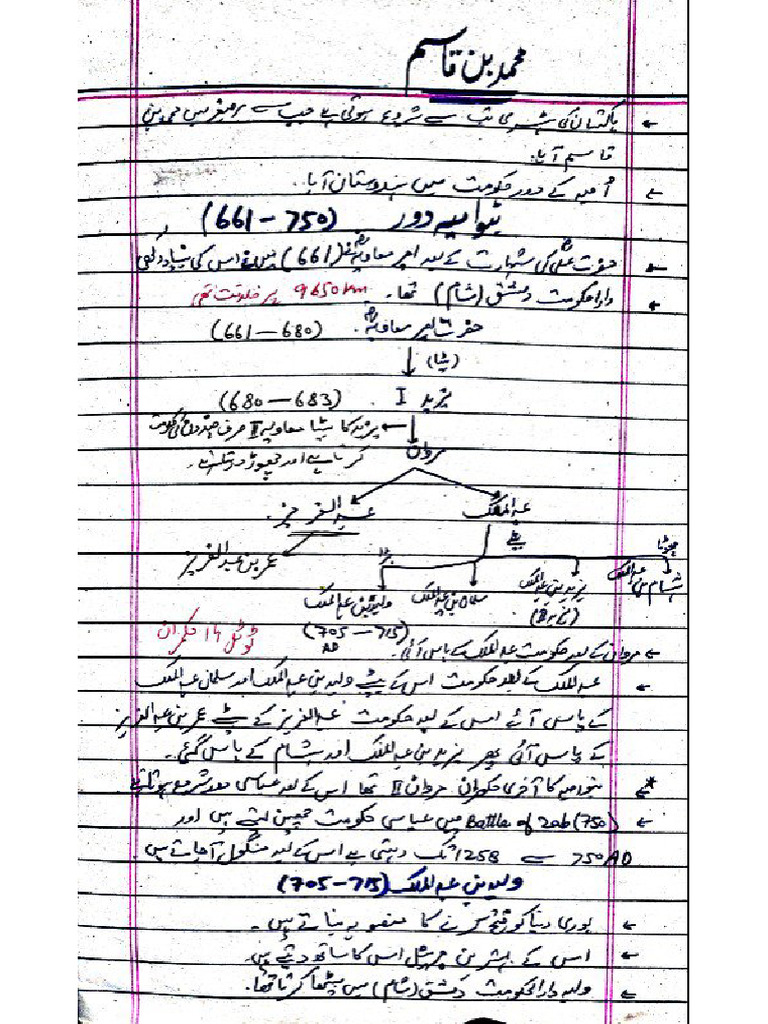 محمد بن قاسم
← پاکستان کی ہسٹری تب سے شروع ہوتی ہے جب سے برصغیر میں محمد بن
قاسم آیا۔
← اُمیہ کے دور حکومت میں ہندوستان آیا۔
بنو امیہ دور (661 – 750)
← حضرت علیؓ کی شہادت کے بعد امیر معاویہؓ نے (661) میں اس کی بنیاد رکھی
← دارالحکومت دمشق (شام) تھا۔ 9650 km پر خلافت تھی
حضرت امیر معاویہؓ (661 – 680)
(بیٹا)
یزید I (680 – 683)
یزید کا بیٹا معاویہ II صرف چند دن حکومت
مروان
کرتا ہے اور چھوڑ دیتا ہے۔
عبدالملک عبدالعزیز
بیٹے
چھوٹا بڑا عمر بن عبدالعزیز
ہشام بن عبدالملک یزید بن عبدالملک سلمان بن عبدالملک ولید بن عبدالملک
(705 – 715) AD
ٹوٹل 14 حکمران
← مروان کے بعد حکومت عبدالملک کے پاس آئی۔
← عبدالملک کے بعد حکومت اس کے بیٹے ولید بن عبدالملک اور سلمان عبدالملک
کے پاس آئے اس کے بعد حکومت عبدالعزیز کے بیٹے عمر بن عبدالعزیز
کے پاس آئی پھر یزید بن عبدالملک اور ہشام کے پاس گئی۔
* بنو امیہ کا آخری حکمران مروان II تھا اس کے بعد عباسی دور شروع ہوتا ہے
← Battle of Zab (750) میں عباسی حکومت چھین لیتے ہیں اور
750 AD سے 1258 تک رہتی ہے اس کے بعد منگول آ جاتے ہیں۔
ولید بن عبدالملک (705 – 715)
← پوری دنیا کو فتح کرنے کا منصوبہ بناتے ہیں۔
← اس کے بہترین جرنیل اس کا ساتھ دیتے ہیں۔
← ولید دارالحکومت دمشق (شام) میں بیٹھا کرتا تھا۔